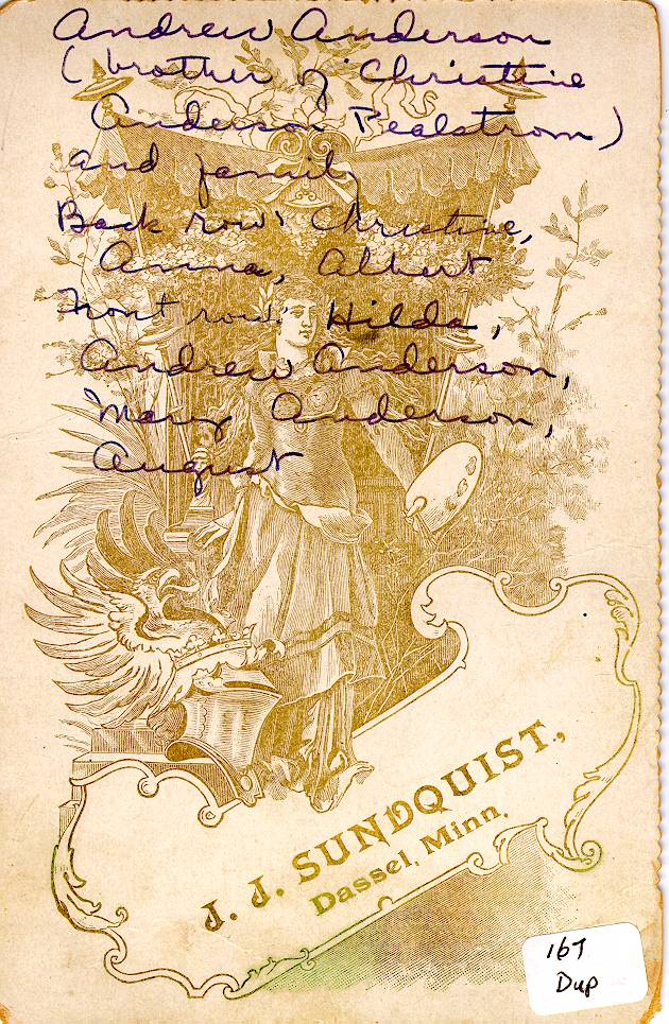 Andrew Anderson
(brother of Christine
Anderson Pealstrom)
and family
Back row: Christine,
Anna, Albert
Front row: Hilda,
Andrew Anderson,
Mary Anderson,
August
J. J. SUNDQUIST.,
Dassel, Minn.
167
Dup